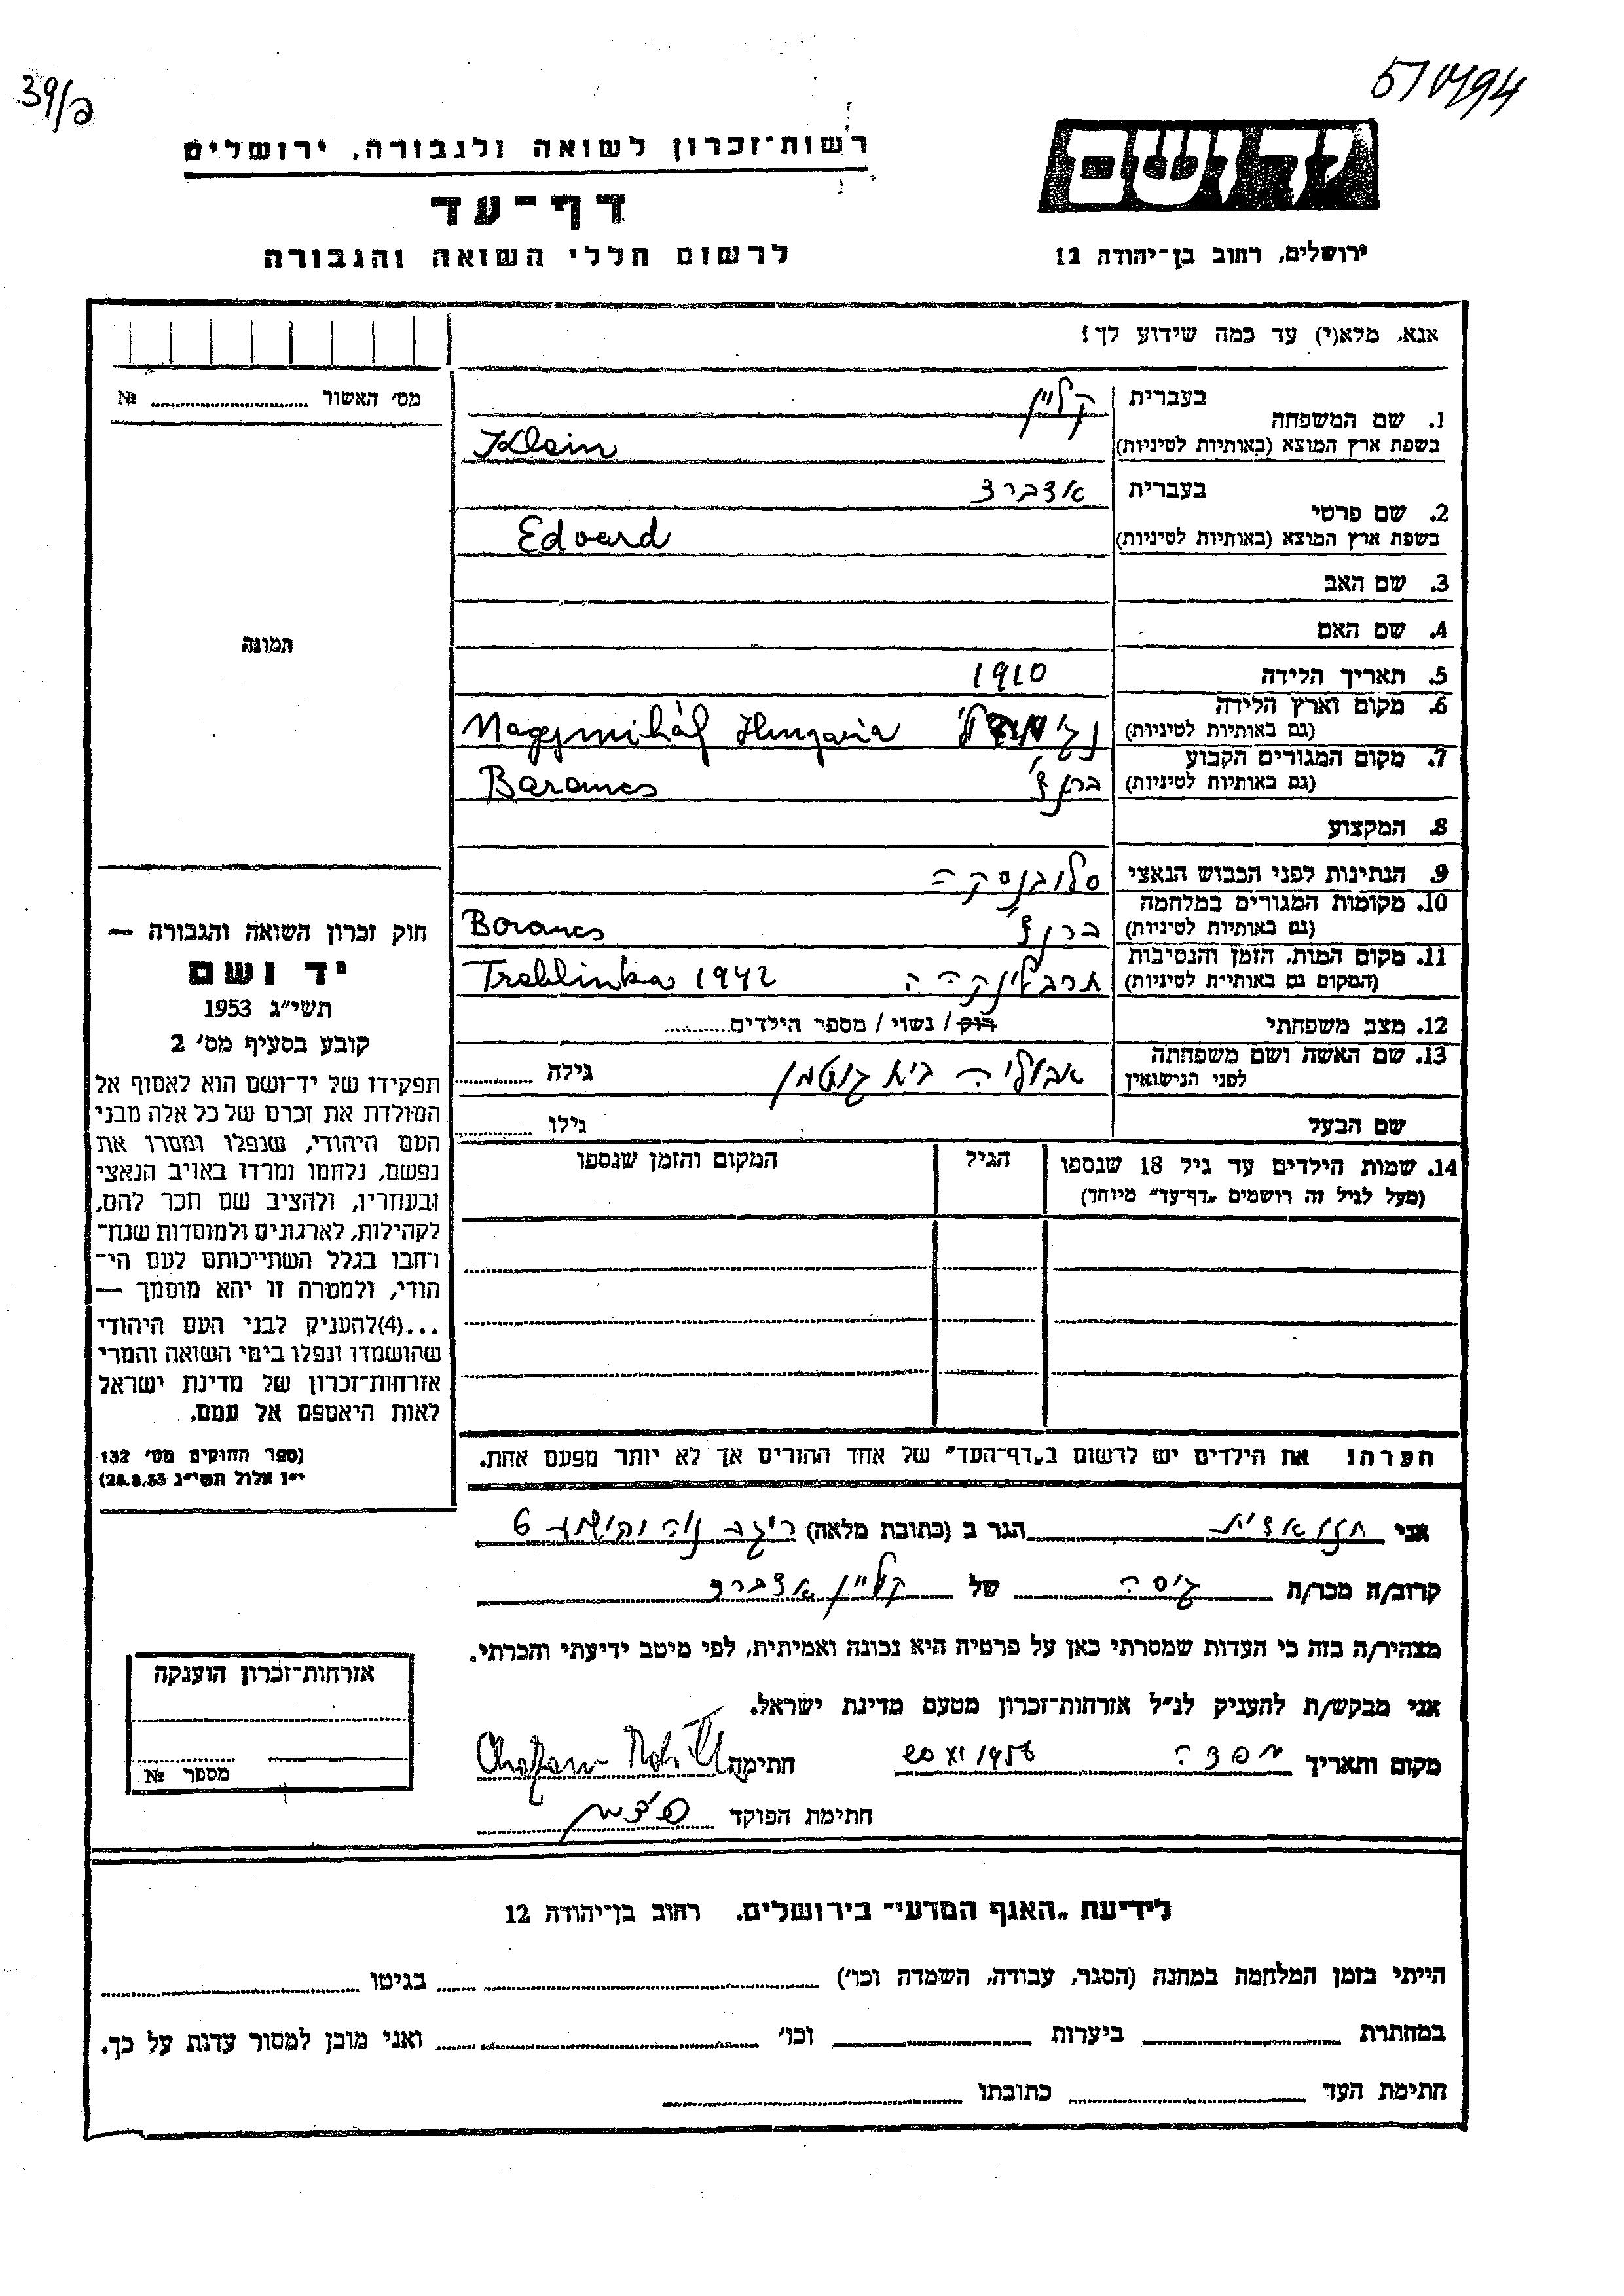 39/פ
רשות־זכרון לשואה ולגבורה, ירושלים
דף־עד
לרשום חללי השואה והגבורה
יד ושם
ירושלים, רחוב בן־יהודה 12
אנא, מלא(י) עד כמה שידוע לך!
מס׳ האשור № 
1. שם המשפחה
בעברית קליין
בשפת ארץ המוצא (באותיות לטיניות) Klein
2. שם פרטי
בעברית אדברד
בשפת ארץ המוצא (באותיות לטיניות) Edvard
3. שם האב
4. שם האם
תמונה
5. תאריך הלידה 1910
6. מקום וארץ הלידה
(גם באותיות לטיניות) Nagymihál Hungaria
7. מקום המגורים הקבוע
(גם באותיות לטיניות) ברנץ׳ Barancs
8. המקצוע
9. הנתינות לפני הכבוש הנאצי סלובנסקה
10. מקומות המגורים במלחמה
(גם באותיות לטיניות) ברנץ׳ Borancs
11. מקום המות, הזמן והנסיבות
(המקום גם באותיות לטיניות) Treblinka 1942
12. מצב משפחתי רוק / נשוי / מספר הילדים
13. שם האשה ושם משפחתה
לפני הנישואין בית גוטמן גילה
שם הבעל גילו
14. שמות הילדים עד גיל 18 שנספו הגיל המקום והזמן שנספו
(מעל לגיל זה רושמים „דף־עד״ מיוחד)
חוק זכרון השואה והגבורה —
יד ושם
תשי״ג 1953
קובע בסעיף מס׳ 2
תפקידו של יד־ושם הוא לאסוף אל
המולדת את זכרם של כל אלה מבני
העם היהודי, שנפלו ומסרו את
נפשם, נלחמו ומרדו באויב הנאצי
ובעוזריו, ולהציב שם וזכר להם,
לקהילות, לארגונים ולמוסדות שנח־
רבו בגלל השתייכותם לעם הי־
הודי, ולמטרה זו יהא מוסמך —
...(4)להעניק לבני העם היהודי
שהושמדו ונפלו בימי השואה והמרי
אזרחות־זכרון של מדינת ישראל
לאות היאספם אל עמם.
(ספר החוקים מס׳ 132
י״ז אלול תשי״ג 28.8.53)
הערה! את הילדים יש לרשום ב„דף־העד״ של אחד ההורים אך לא יותר מפעם אחת.
אני הגר ב (כתובת מלאה) 6
קרוב/ה מכר/ה גיסה של קליין אדברד
מצהיר/ה בזה כי העדות שמסרתי כאן על פרטיה היא נכונה ואמיתית, לפי מיטב ידיעתי והכרתי.
אני מבקש/ת להעניק לנ״ל אזרחות־זכרון מטעם מדינת ישראל.
מקום ותאריך 20 XI 1956 חתימה
חתימת הפוקד
אזרחות־זכרון הוענקה
מספר №
לידיעת „האגף המדעי״ בירושלים. רחוב בן־יהודה 12
הייתי בזמן המלחמה במחנה (הסגר, עבודה, השמדה וכו׳) בגיטו
במחתרת ביערות וכו׳ ואני מוכן למסור עדות על כך.
חתימת העד כתובתו